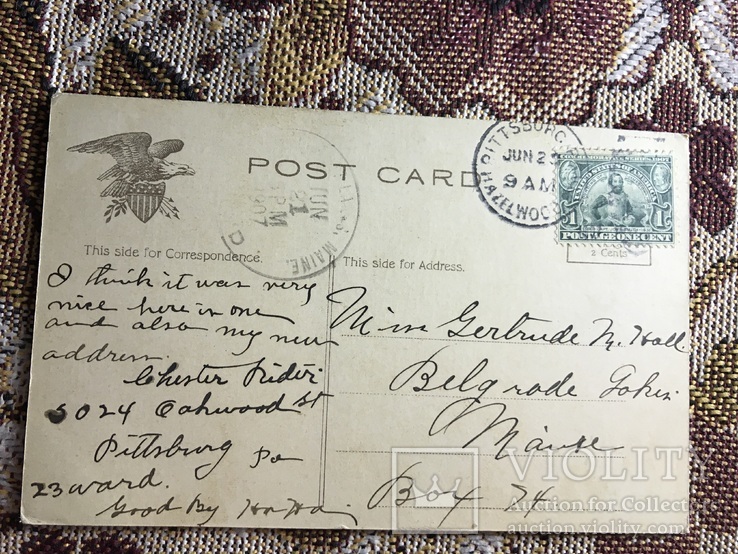 POST CARD
PITTSBURG,
JUN 2
9 AM
HAZELWOOD
MAINE.
JUN
21
PM
1907
D
COMMEMORATIVE SERIES, 1907
UNITED STATES OF AMERICA
1 1
POSTAGE ONE CENT
2 Cents
This side for Correspondence.
This side for Address.
I think it was very
nice here in one
and also my new
address.
Chester Rider
5024 Oakwood St
Pittsburg Pa
23 ward.
Good By Ha Ha
Miss Gertrude M. Hall
Belgrade Lakes
Maine
Box 74
VIOLITY
Auction for Collectors
auction.violity.com